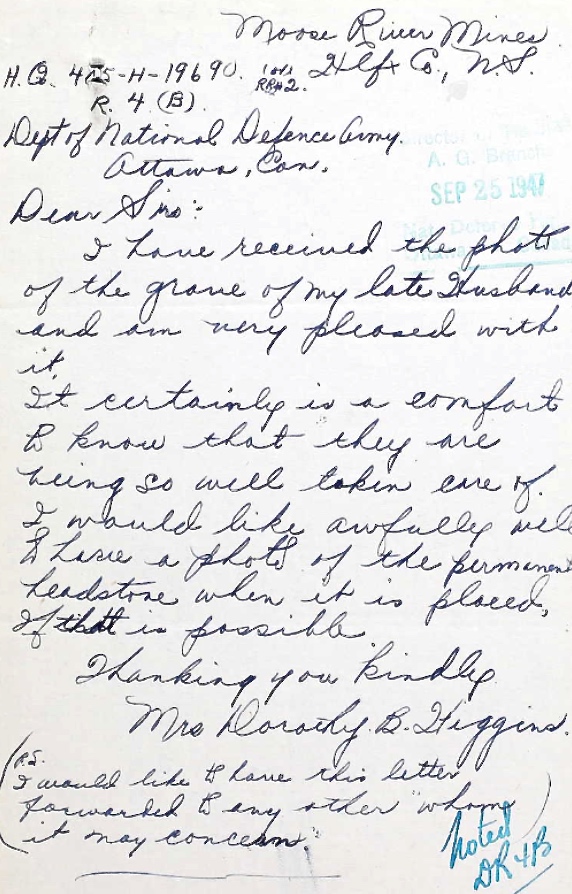 Moose River Mines.
Hlfx Co., N.S.
H.Q. 425-H-19690.
RR#2.
R. 4 (B).
Dept of National Defence Army.
Ottawa, Can.
A. G. Branch
SEP 25 1947
Dear Sirs:
I have received the photo
of the grave of my late Husband
and am very pleased with
it.
It certainly is a comfort
to know that they are
being so well taken care of.
I would like awfully well
to have a photo of the permanent
headstone when it is placed,
If that is possible
Thanking you kindly
Mrs Dorothy B. Higgins.
(P.S.
I would like to have this letter
forwarded to any other "whome
it may concern.")
noted
DR4B